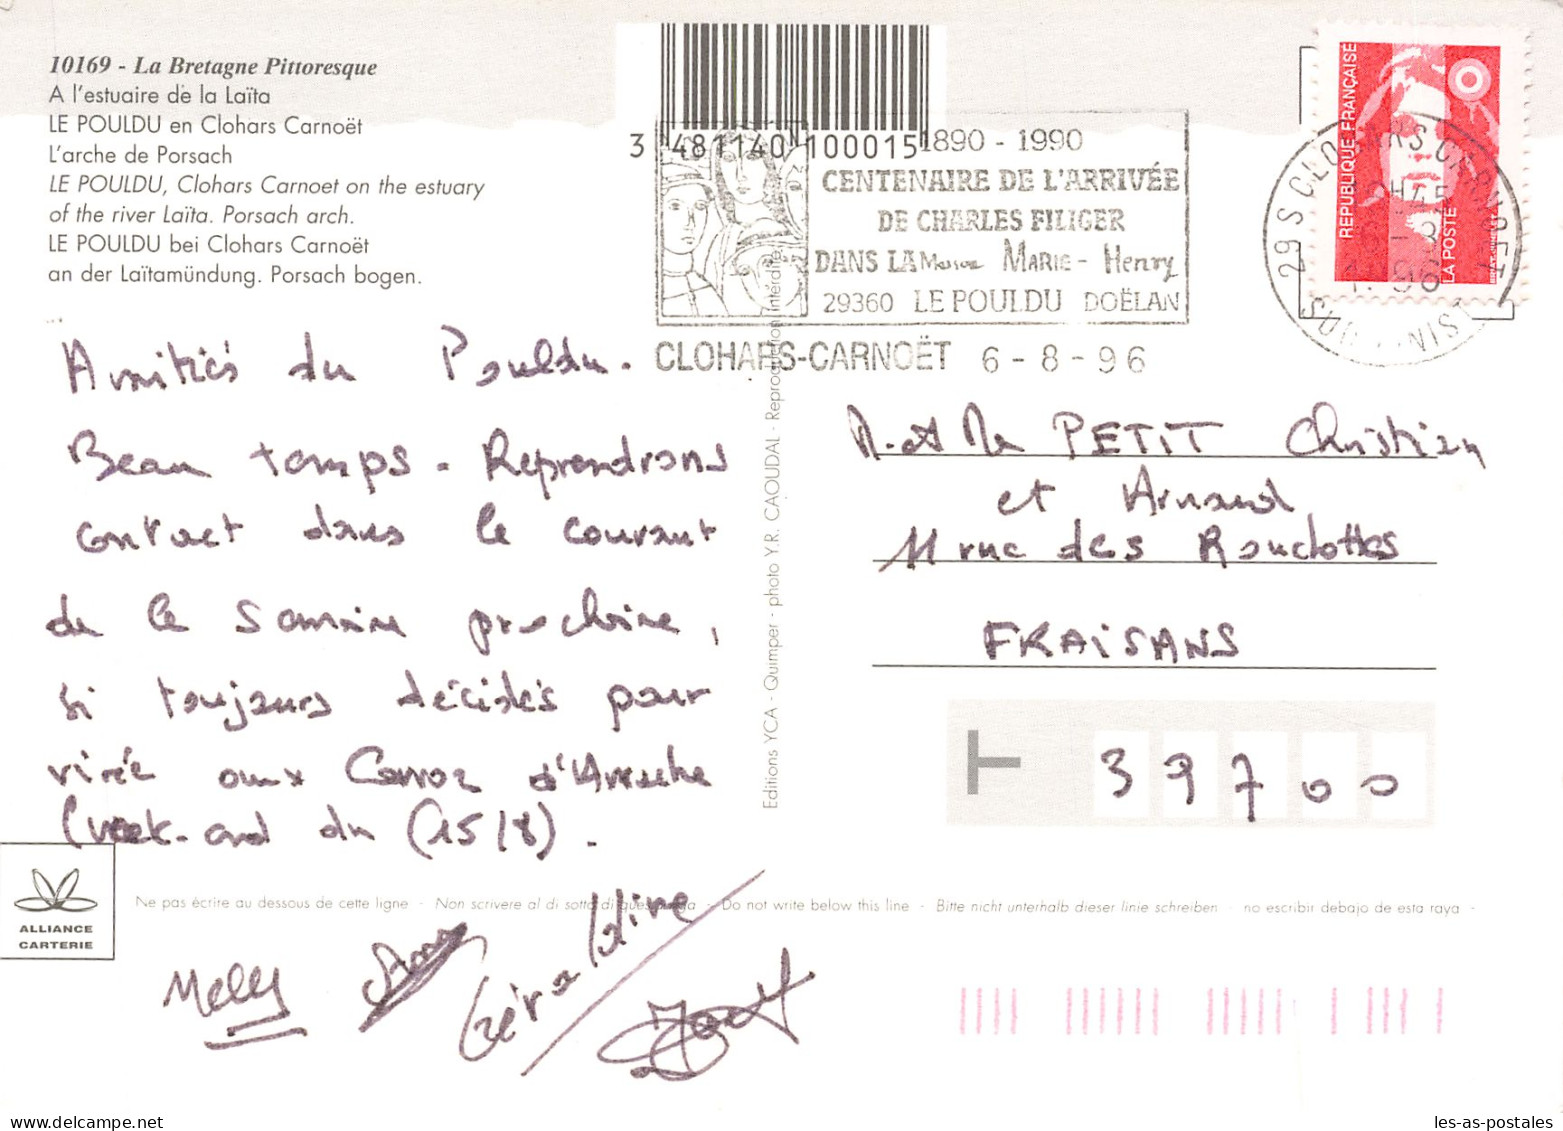 10169 - La Bretagne Pittoresque
A l'estuaire de la Laïta
LE POULDU en Clohars Carnoët
L'arche de Porsach
LE POULDU, Clohars Carnoet on the estuary
of the river Laïta. Porsach arch.
LE POULDU bei Clohars Carnoët
an der Laïtamündung. Porsach bogen.
3 481140 100015
1890 - 1990
CENTENAIRE DE L'ARRIVÉE
DE CHARLES FILIGER
DANS LA Maison MARIE - Henry
29360 LE POULDU DOËLAN
CLOHARS-CARNOËT 6 - 8 - 96
RÉPUBLIQUE FRANÇAISE
LA POSTE
29 S CLOHARS CARNOET
Amitiés du Pouldu.
Beau temps. Reprendrons
contact dans le courant
de la semaine prochaine,
si toujours décidés pour
virée aux Carroz d'Arrache
(week-end du (15/8).
Melly
Géraldine
M. et Me PETIT Christian
et Arnaud
11 rue des Roulottes
FRAISANS
T 39700
Editions YCA - Quimper - photo Y.R. CAOUDAL - Reproduction interdite
ALLIANCE
CARTERIE
Ne pas écrire au dessous de cette ligne - Non scrivere al di sotto di questa riga - Do not write below this line - Bitte nicht unterhalb dieser linie schreiben - no escribir debajo de esta raya -
les-as-postales